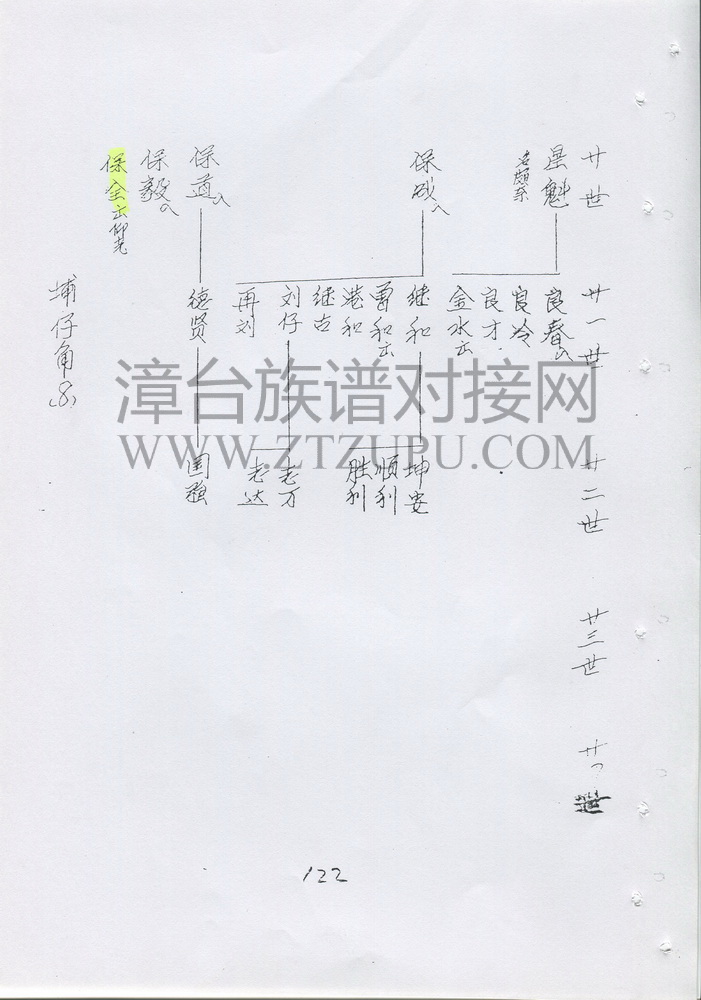 廿世
廿一世
廿二世
廿三世
廿
星魁
良春
良冷
良才
金水
保成
继和
曾和
港和
继古
刘仔
再刘
坤安
顺利
胜利
老万
老达
保道
德贤
国强
保毅
保全
埔仔角
漳台族谱对接网
WWW.ZTZUPU.COM
122